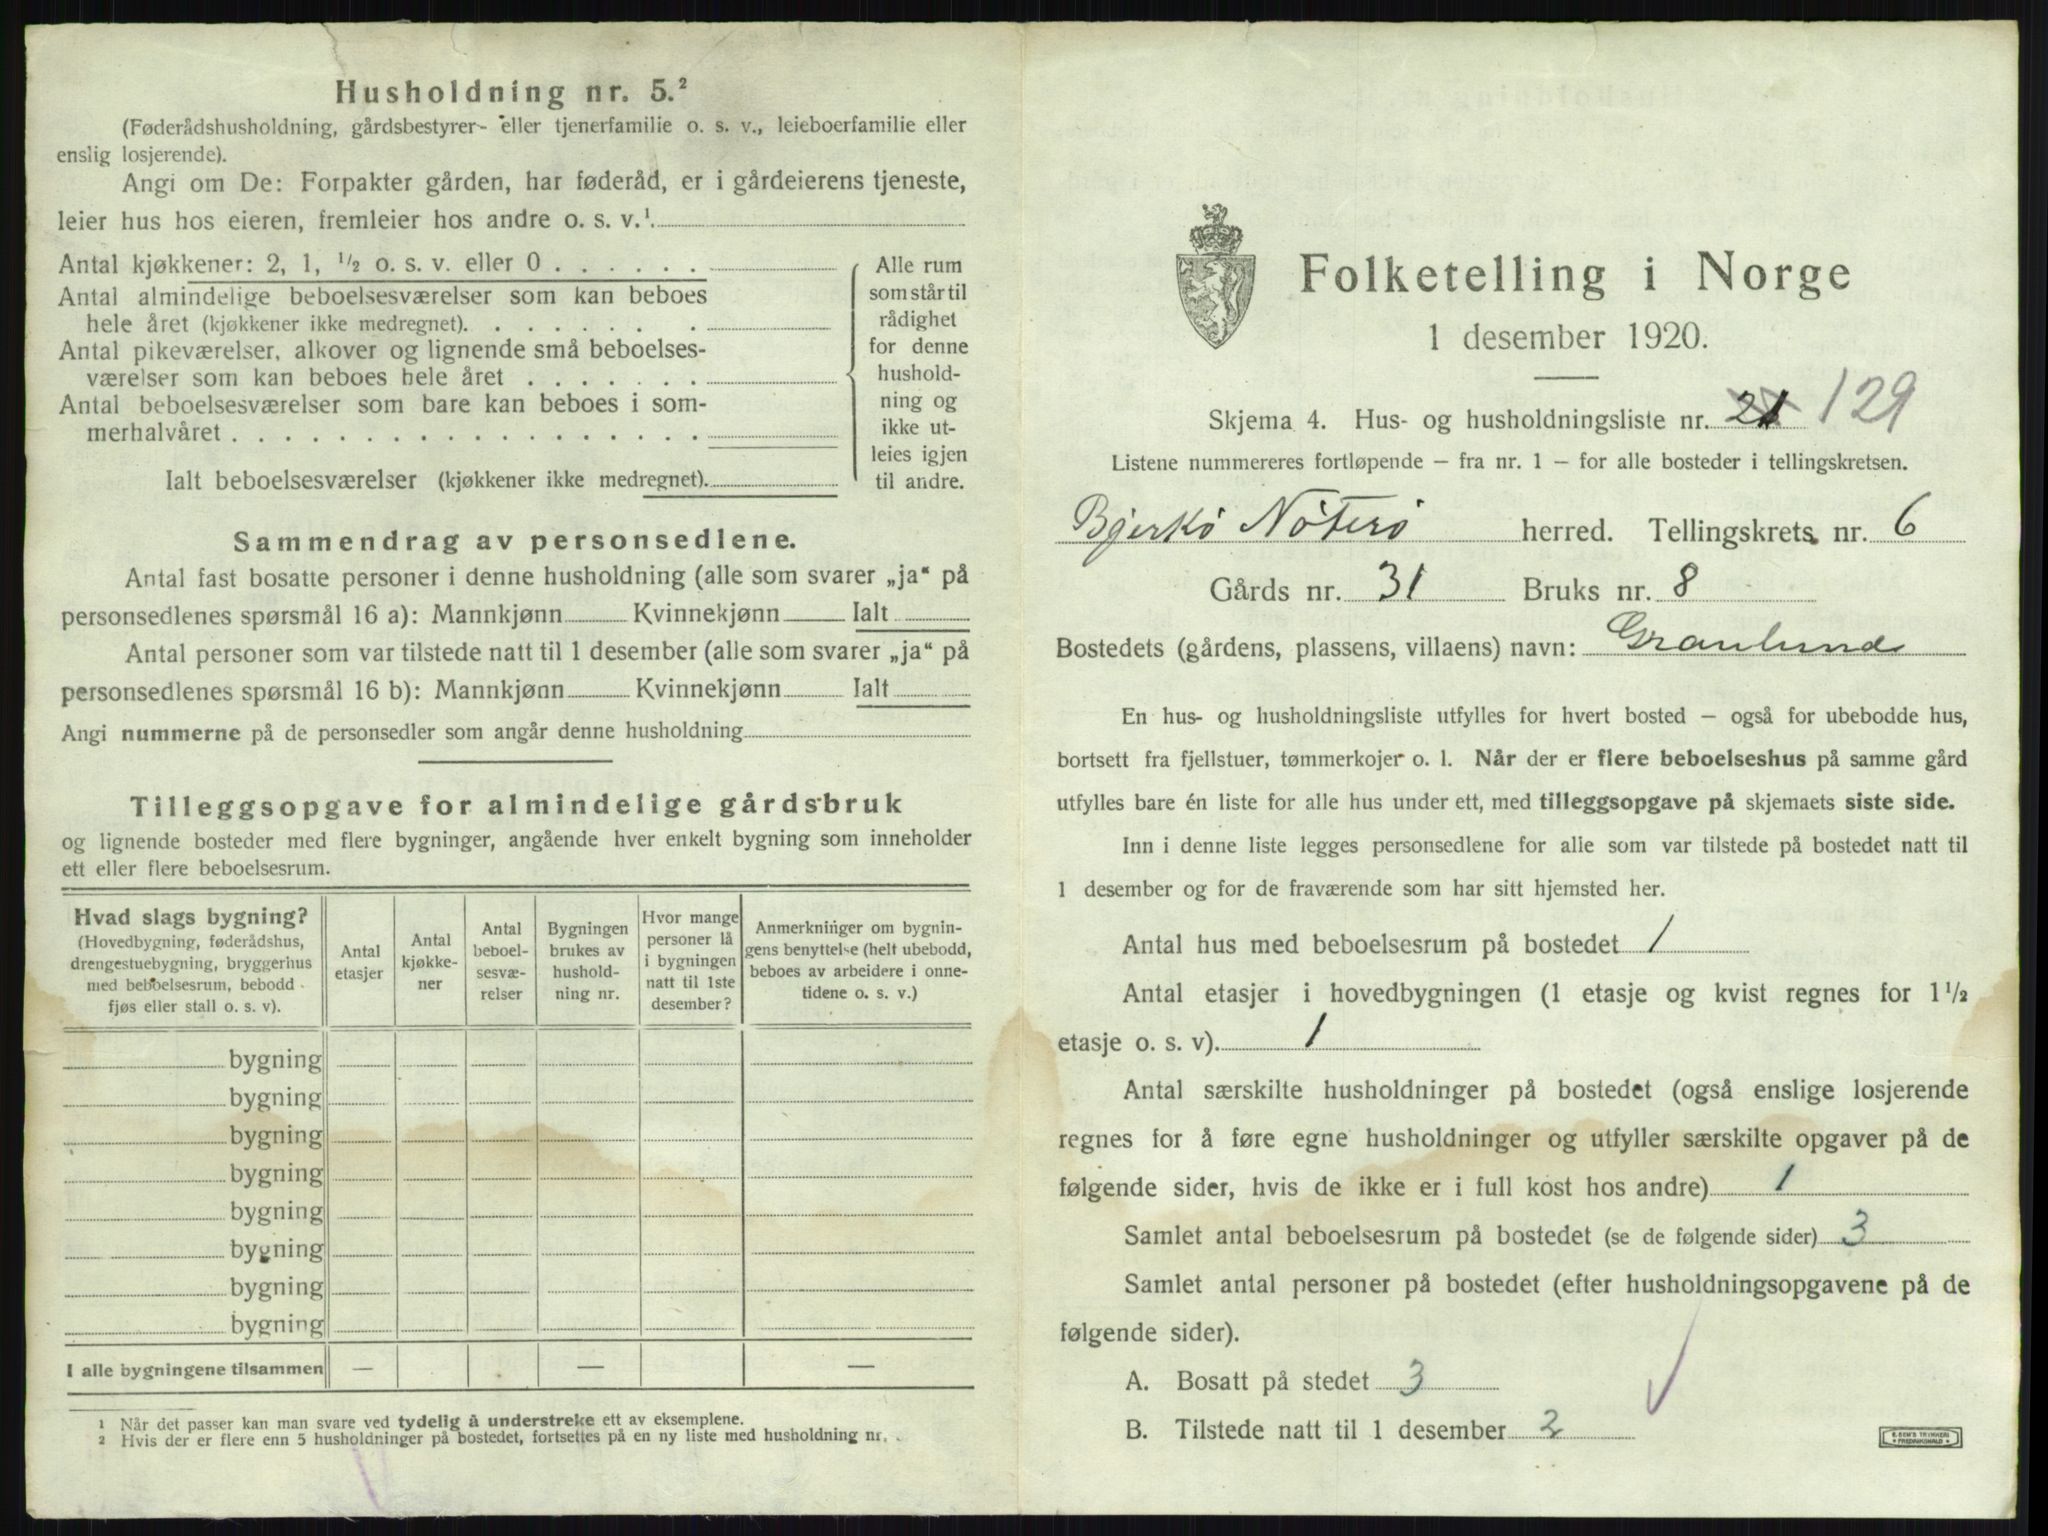 Husholdning nr. 5.²
(Føderådshusholdning, gårdsbestyrer- eller tjenerfamilie o. s. v., leieboerfamilie eller
enslig losjerende).
Angi om De: Forpakter gården, har føderåd, er i gårdeierens tjeneste,
leier hus hos eieren, fremleier hos andre o. s. v.¹
Antal kjøkkener: 2, 1, ½ o. s. v. eller 0 . . . . . .
Antal almindelige beboelsesværelser som kan beboes
hele året (kjøkkener ikke medregnet). . . . . . . . .
Antal pikeværelser, alkover og lignende små beboelses-
værelser som kan beboes hele året . . . . . . .
Antal beboelsesværelser som bare kan beboes i som-
merhalvåret . . . . . . . . . . . . . . . . . .
Ialt beboelsesværelser (kjøkkener ikke medregnet).
Alle rum
som står til
rådighet
for denne
hushold-
ning og
ikke ut-
leies igjen
til andre.
Sammendrag av personsedlene.
Antal fast bosatte personer i denne husholdning (alle som svarer „ja“ på
personsedlenes spørsmål 16 a): Mannkjønn Kvinnekjønn Ialt
Antal personer som var tilstede natt til 1 desember (alle som svarer „ja“ på
personsedlenes spørsmål 16 b): Mannkjønn Kvinnekjønn Ialt
Angi nummerne på de personsedler som angår denne husholdning
Tilleggsopgave for almindelige gårdsbruk
og lignende bosteder med flere bygninger, angående hver enkelt bygning som inneholder
ett eller flere beboelsesrum.
Hvad slags bygning?
(Hovedbygning, føderådshus,
drengestuebygning, bryggerhus
med beboelsesrum, bebodd
fjøs eller stall o. s. v).
Antal
etasjer
Antal
kjøkke-
ner
Antal
beboel-
sesvæ-
relser
Bygningen
brukes av
hushold-
ning nr.
Hvor mange
personer lå
i bygningen
natt til 1ste
desember?
Anmerkninger om bygnin-
gens benyttelse (helt ubebodd,
beboes av arbeidere i onne-
tidene o. s. v.)
bygning
bygning
bygning
bygning
bygning
bygning
bygning
bygning
I alle bygningene tilsammen — — —
¹ Når det passer kan man svare ved tydelig å understreke ett av eksemplene.
² Hvis der er flere enn 5 husholdninger på bostedet, fortsettes på en ny liste med husholdning nr.
Folketelling i Norge
1 desember 1920.
Skjema 4. Hus- og husholdningsliste nr. 21 129
Listene nummereres fortløpende – fra nr. 1 – for alle bosteder i tellingskretsen.
Bjerkö Nöterö herred. Tellingskrets nr. 6
Gårds nr. 31 Bruks nr. 8
Bostedets (gårdens, plassens, villaens) navn: Granlund
En hus- og husholdningsliste utfylles for hvert bosted – også for ubebodde hus,
bortsett fra fjellstuer, tømmerkojer o. l. Når der er flere beboelseshus på samme gård
utfylles bare én liste for alle hus under ett, med tilleggsopgave på skjemaets siste side.
Inn i denne liste legges personsedlene for alle som var tilstede på bostedet natt til
1 desember og for de fraværende som har sitt hjemsted her.
Antal hus med beboelsesrum på bostedet 1
Antal etasjer i hovedbygningen (1 etasje og kvist regnes for 1½
etasje o. s. v). 1
Antal særskilte husholdninger på bostedet (også enslige losjerende
regnes for å føre egne husholdninger og utfyller særskilte opgaver på de
følgende sider, hvis de ikke er i full kost hos andre) 1
Samlet antal beboelsesrum på bostedet (se de følgende sider) 3
Samlet antal personer på bostedet (efter husholdningsopgavene på de
følgende sider).
A. Bosatt på stedet 3
B. Tilstede natt til 1 desember 2
E. SEM'S TRYKKERI
FREDRIKSHALD